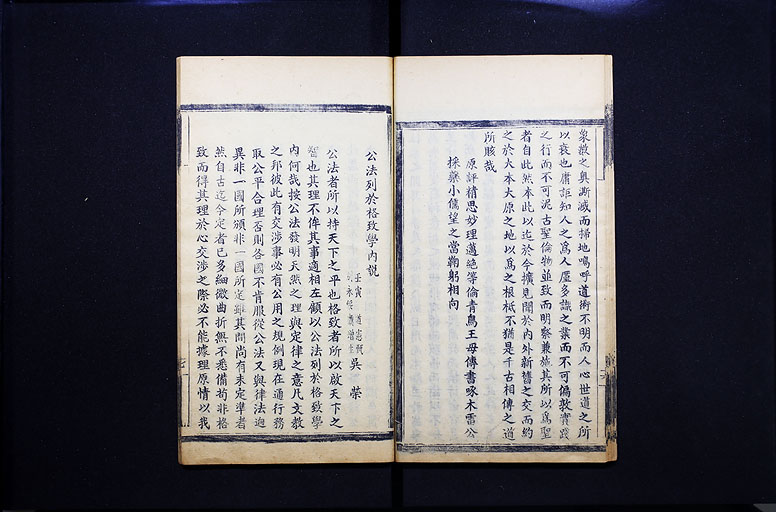 蒙徽之奧斯滅而掃地嗚呼道術不明而人心世道之所
以衰也庸詎知人之為人屢多識之業而不可偏敦實踐
之行而不可泥古聖倫物並致而明察兼施其所以為聖
者自此然本此以迄於今擴見聞於內外新舊之交而約
之於大本大原之地以為之根柢不猶是千古相傳之道
所賅哉
原評精思妙理邁絕等倫青鳥王母傳書啄木雷公
採藥小儒望之當鞠躬相向
公法列於格致學內說
壬寅 道憲甄
永 增生 吳榮
公法者所以持天下之平也格致者所以啟天下之
智也其理不侔其事適相左顧以公法列於格致學
內何哉按公法發明天然之理與定律之意凡文教
之邦彼此有交涉事必有公用之規例現在通行務
取公平合理否則各國不肯服從公法又與律法迥
異非一國所頒非一國所定雖其間尚有未定準者
然自古迄今定者已多細微曲折無不悉備苟非格
致而得其理於心交涉之際必不能據理原情以我